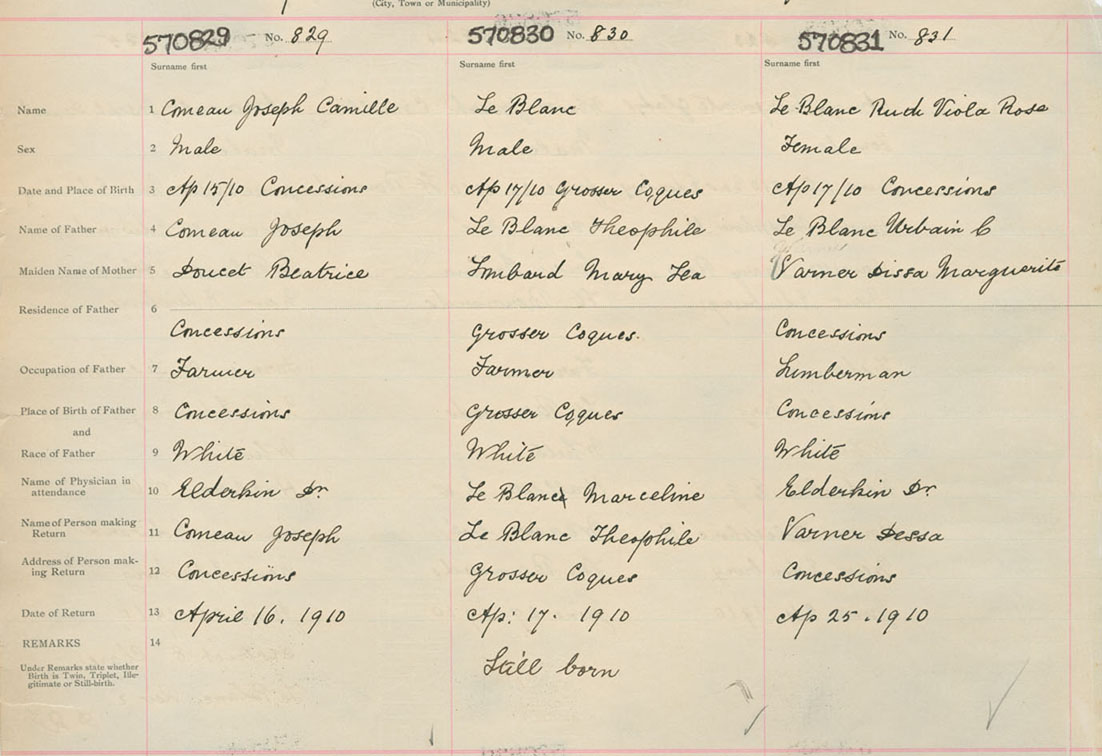 (City, Town or Municipality)
570829 No. 829 570830 No. 830 570831 No. 831
Surname first Surname first Surname first
Name 1 Comeau Joseph Camille Le Blanc Le Blanc Rudi Viola Rose
Sex 2 Male Male Female
Date and Place of Birth 3 Ap 15/10 Concessions Ap 17/10 Grosser Coques Ap 17/10 Concessions
Name of Father 4 Comeau Joseph Le Blanc Theophile Le Blanc Urbain C
Maiden Name of Mother 5 Doucet Beatrice Lombard Mary Lea Varner Dissa Marguerite
Residence of Father 6
Concessions Grosser Coques. Concessions
Occupation of Father 7 Farmer Farmer Lumberman
Place of Birth of Father 8 Concessions Grosser Coques Concessions
and
Race of Father 9 White White White
Name of Physician in
attendance 10 Elderkin Dr Le Blanc Marceline Elderkin Dr.
Name of Person making
Return 11 Comeau Joseph Le Blanc Theophile Varner Dessa
Address of Person mak-
ing Return 12 Concessions Grosser Coques Concessions
Date of Return 13 April 16. 1910 Ap: 17. 1910 Ap 25. 1910
REMARKS 14
Under Remarks state whether
Birth is Twin, Triplet, Ille-
gitimate or Still-birth.
Still born